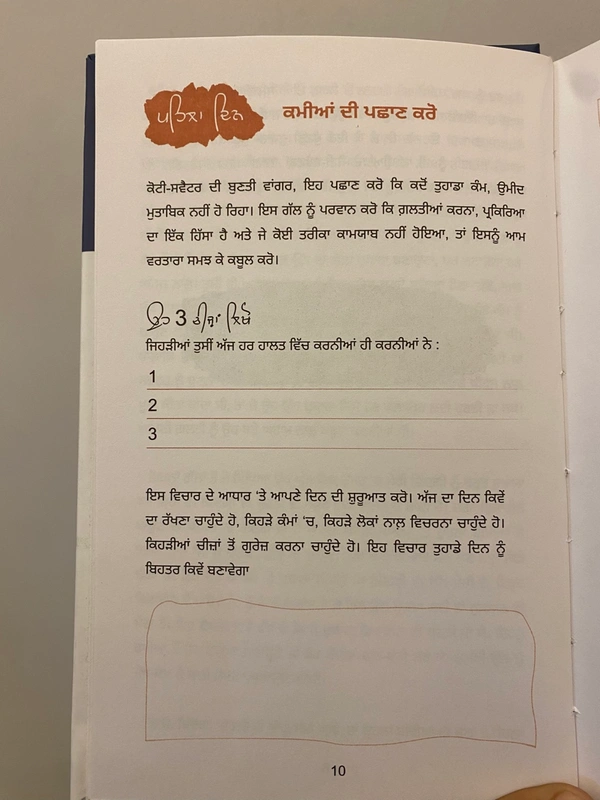 ਪਹਿਲਾ ਦਿਨ
ਕਮੀਆਂ ਦੀ ਪਛਾਣ ਕਰੋ
ਕੋਟੀ-ਸਵੈਟਰ ਦੀ ਬੁਣਤੀ ਵਾਂਗਰ, ਇਹ ਪਛਾਣ ਕਰੋ ਕਿ ਕਦੋਂ ਤੁਹਾਡਾ ਕੰਮ, ਉਮੀਦ
ਮੁਤਾਬਿਕ ਨਹੀਂ ਹੋ ਰਿਹਾ। ਇਸ ਗੱਲ ਨੂੰ ਪਰਵਾਨ ਕਰੋ ਕਿ ਗ਼ਲਤੀਆਂ ਕਰਨਾ, ਪ੍ਰਕਿਰਿਆ
ਦਾ ਇੱਕ ਹਿੱਸਾ ਹੈ ਅਤੇ ਜੇ ਕੋਈ ਤਰੀਕਾ ਕਾਮਯਾਬ ਨਹੀਂ ਹੋਇਆ, ਤਾਂ ਇਸਨੂੰ ਆਮ
ਵਰਤਾਰਾ ਸਮਝ ਕੇ ਕਬੂਲ ਕਰੋ।
ਉਹ 3 ਚੀਜ਼ਾਂ ਲਿਖੋ
ਜਿਹੜੀਆਂ ਤੁਸੀਂ ਅੱਜ ਹਰ ਹਾਲਤ ਵਿੱਚ ਕਰਨੀਆਂ ਹੀ ਕਰਨੀਆਂ ਨੇ :
1
2
3
ਇਸ ਵਿਚਾਰ ਦੇ ਆਧਾਰ 'ਤੇ ਆਪਣੇ ਦਿਨ ਦੀ ਸ਼ੁਰੂਆਤ ਕਰੋ। ਅੱਜ ਦਾ ਦਿਨ ਕਿਵੇਂ
ਦਾ ਰੱਖਣਾ ਚਾਹੁੰਦੇ ਹੋ, ਕਿਹੜੇ ਕੰਮਾਂ 'ਚ, ਕਿਹੜੇ ਲੋਕਾਂ ਨਾਲ਼ ਵਿਚਰਨਾ ਚਾਹੁੰਦੇ ਹੋ।
ਕਿਹੜੀਆਂ ਚੀਜ਼ਾਂ ਤੋਂ ਗੁਰੇਜ਼ ਕਰਨਾ ਚਾਹੁੰਦੇ ਹੋ। ਇਹ ਵਿਚਾਰ ਤੁਹਾਡੇ ਦਿਨ ਨੂੰ
ਬਿਹਤਰ ਕਿਵੇਂ ਬਣਾਵੇਗਾ
10